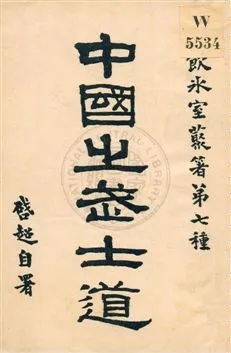 W
5534
飲氷室叢著第七種
中國之武士道
啓超自署
NATIONAL CENTRAL LIBRARY